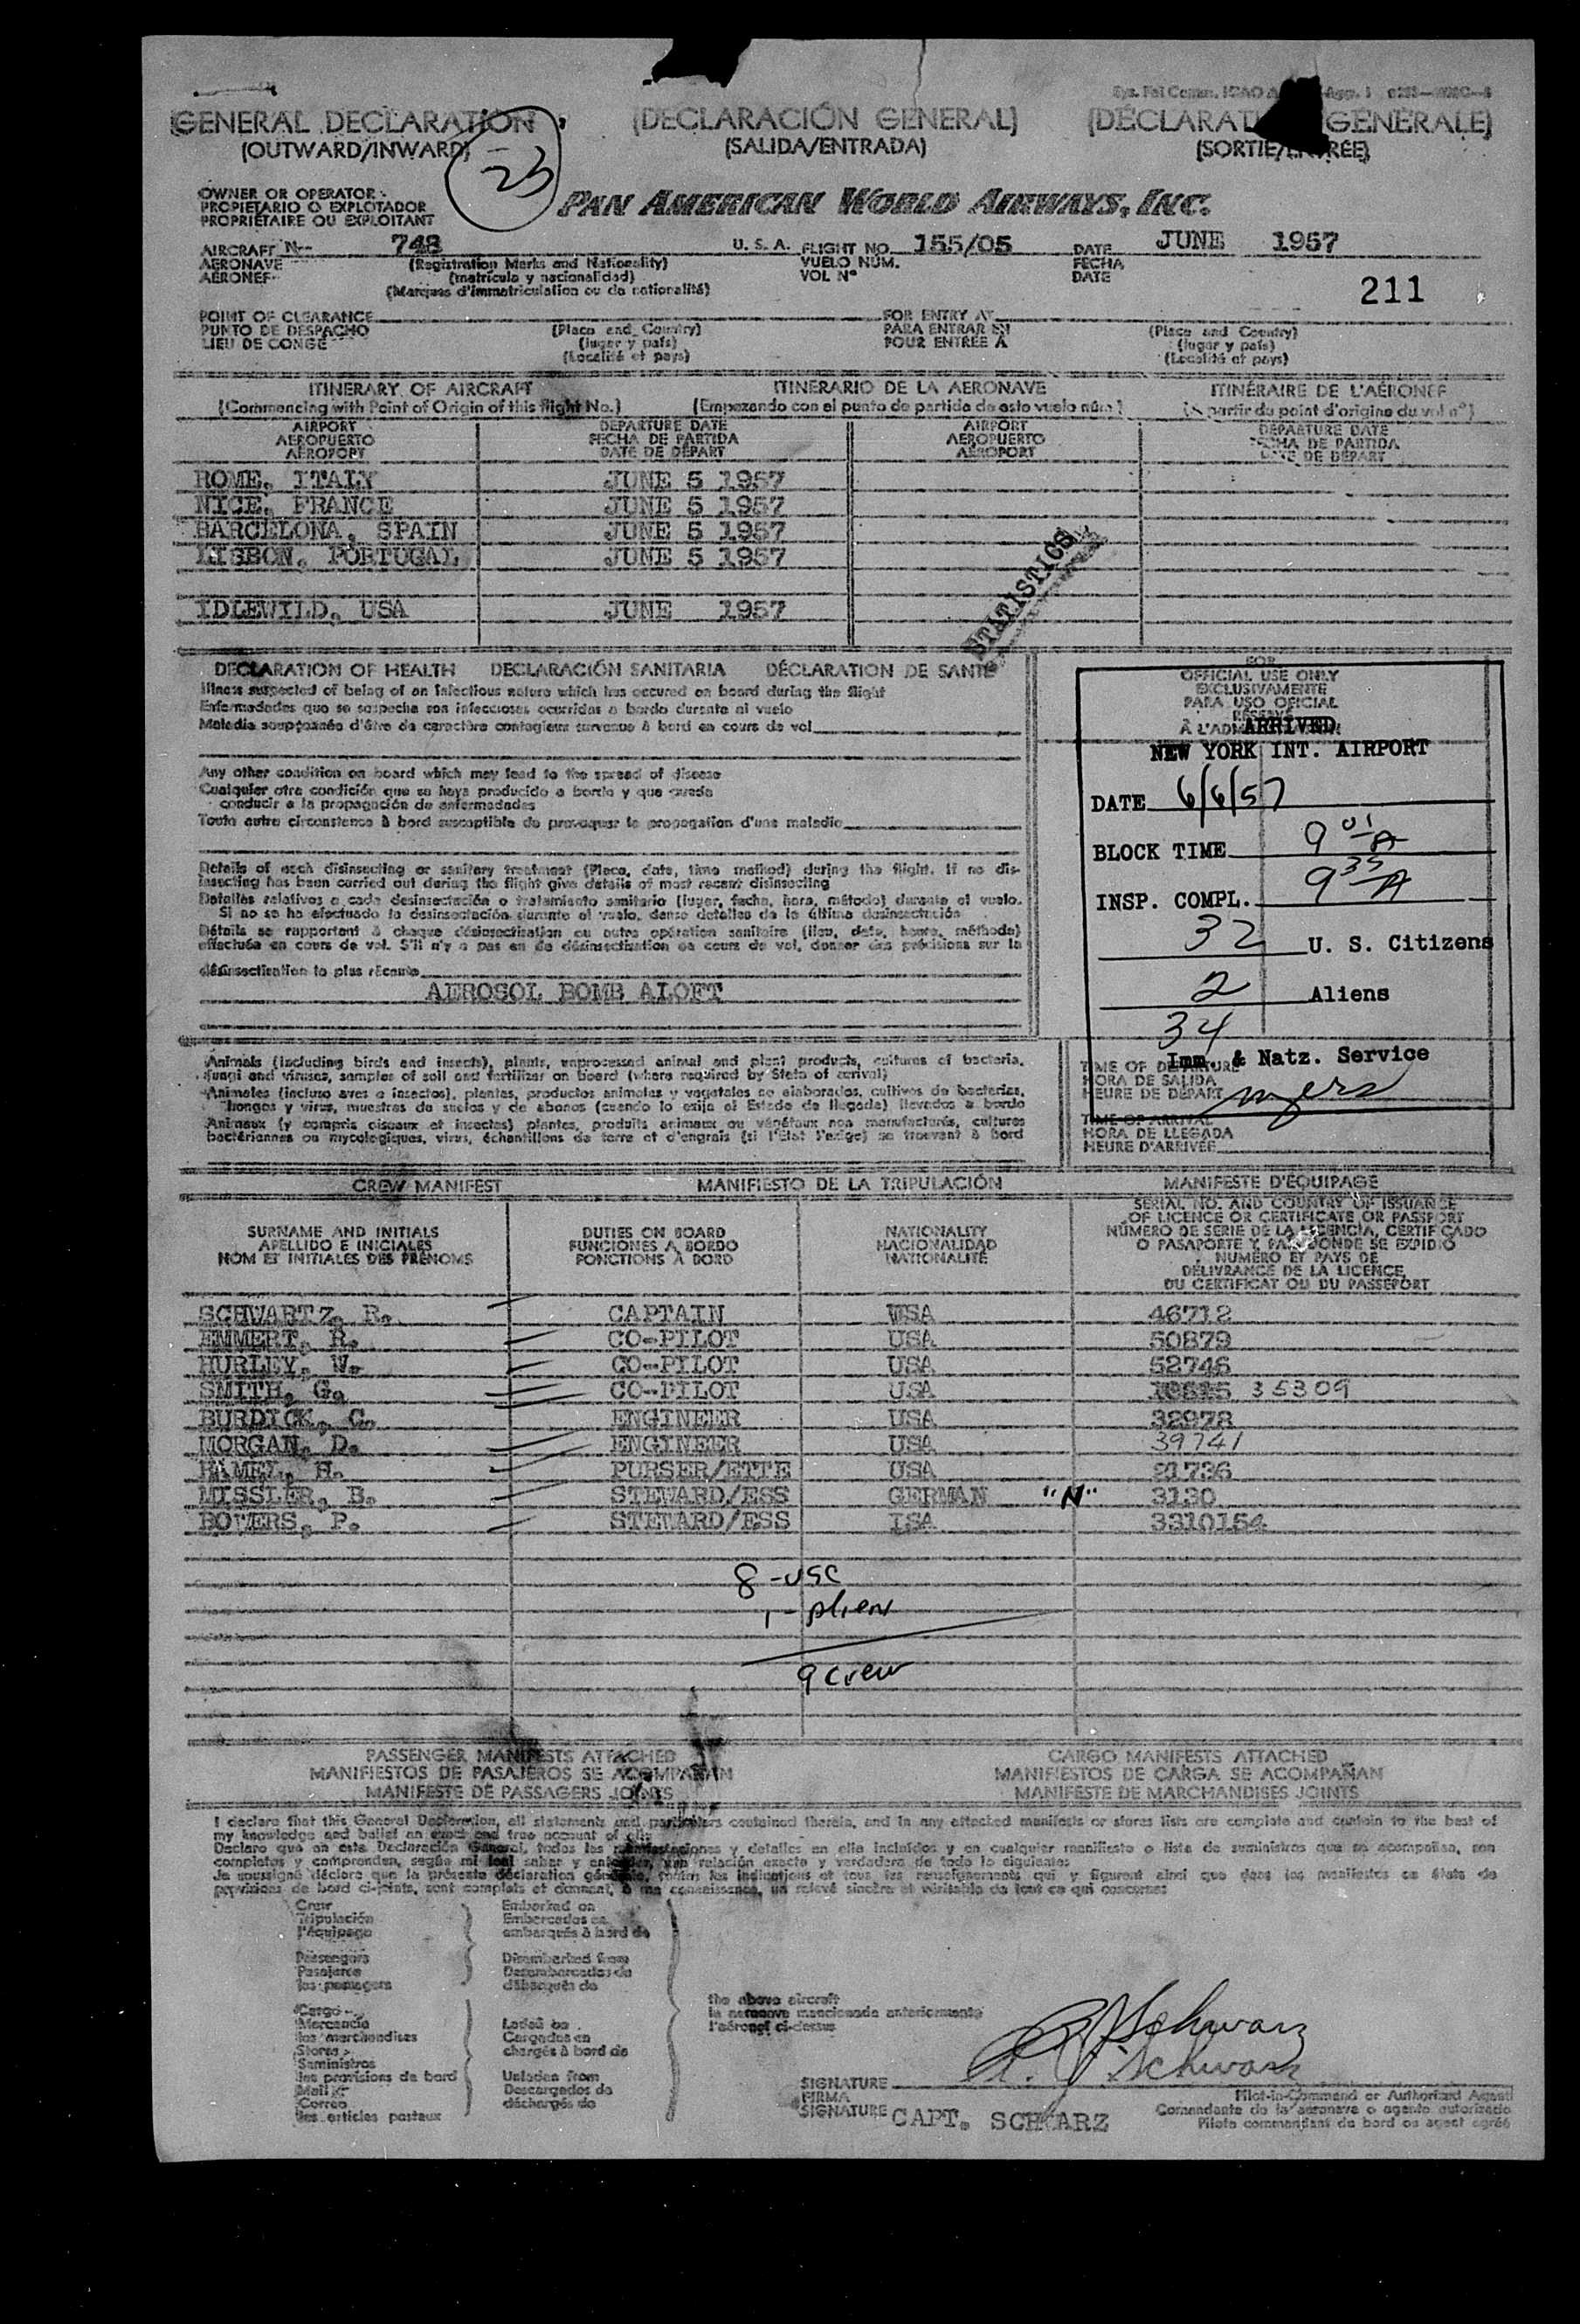 GENERAL DECLARATION
(OUTWARD/INWARD)
23
(DECLARACIÓN GENERAL)
(SALIDA/ENTRADA)
(DÉCLARAT GENERALE)
(SORTIE/ENTRÉE)
OWNER OR OPERATOR
PROPIETARIO O EXPLOTADOR
PROPRIÉTAIRE OU EXPLOITANT
PAN AMERICAN WORLD AIRWAYS, INC.
AIRCRAFT N-- 748 U. S. A. FLIGHT NO. 155/05 DATE JUNE 1957
AERONAVE (Registration Marks and Nationality) VUELO NÚM. FECHA
AÉRONEF (matrícula y nacionalidad) VOL Nº DATE
(Marques d'immatriculation ou de nationalité)
211
POINT OF CLEARANCE FOR ENTRY AT
PUNTO DE DESPACHO (Place and Country) PARA ENTRAR EN (Place and Country)
LIEU DE CONGÉ (lugar y país) POUR ENTRÉE À (lugar y país)
(Localité et pays) (Localité et pays)
ITINERARY OF AIRCRAFT ITINERARIO DE LA AERONAVE ITINÉRAIRE DE L'AÉRONEF
(Commencing with Point of Origin of this flight No.) (Empezando con el punto de partida de este vuelo núm.) (À partir du point d'origine du vol nº)
AIRPORT DEPARTURE DATE AIRPORT DEPARTURE DATE
AEROPUERTO FECHA DE PARTIDA AEROPUERTO FECHA DE PARTIDA
AÉROPORT DATE DE DÉPART AÉROPORT DATE DE DÉPART
ROME, ITALY JUNE 5 1957
NICE, FRANCE JUNE 5 1957
BARCELONA, SPAIN JUNE 5 1957
LISBON, PORTUGAL JUNE 5 1957
IDLEWILD, USA JUNE 1957
STATISTICS
DECLARATION OF HEALTH DECLARACIÓN SANITARIA DÉCLARATION DE SANTÉ
Illness suspected of being of an infectious nature which has occured on board during the flight
Enfermedades que se sospecha son infecciosas ocurridas a bordo durante el vuelo
Maladie soupçonnée d'être de caractère contagieux survenue à bord en cours de vol
Any other condition on board which may lead to the spread of disease
Cualquier otra condición que se haya producido a bordo y que pueda
conducir a la propagación de enfermedades
Toute autre circonstance à bord susceptible de provoquer la propagation d'une maladie
Details of each disinsecting or sanitary treatment (Place, date, time method) during the flight. If no dis-
insecting has been carried out during the flight give details of most recent disinsecting
Detalles relativos a cada desinsectación o tratamiento sanitario (lugar, fecha, hora, método) durante el vuelo.
Si no se ha efectuado la desinsectación durante el vuelo, dense detalles de la última desinsectación
Détails se rapportant à chaque désinsectisation ou autre opération sanitaire (lieu, date, heure, méthode)
effectuée en cours de vol. S'il n'y a pas eu de désinsectisation en cours de vol, donner des précisions sur la
désinsectisation la plus récente
AEROSOL BOMB ALOFT
FOR
OFFICIAL USE ONLY
EXCLUSIVAMENTE
PARA USO OFICIAL
RÉSERVÉ
À L'ADM
ARRIVED
NEW YORK INT. AIRPORT
DATE 6/6/57
BLOCK TIME 9 01 A
INSP. COMPL. 9 35 A
32 U. S. Citizens
2 Aliens
34
Imm. & Natz. Service
Animals (including birds and insects), plants, unprocessed animal and plant products, cultures of bacteria,
fungi and viruses, samples of soil and fertilizer on board (where required by State of arrival)
Animales (incluso aves e insectos), plantas, productos animales y vegetales no elaborados, cultivos de bacterias,
hongos y virus, muestras de suelos y de abonos (cuando lo exija el Estado de llegada) llevados a bordo
Animaux (y compris oiseaux et insectes) plantes, produits animaux ou végétaux non manufacturés, cultures
bactériennes ou mycologiques, virus, échantillons de terre et d'engrais (si l'État l'exige) se trouvant à bord
TIME OF DEPARTURE
HORA DE SALIDA
HEURE DE DÉPART
TIME OF ARRIVAL
HORA DE LLEGADA
HEURE D'ARRIVÉE
CREW MANIFEST MANIFIESTO DE LA TRIPULACIÓN MANIFESTE D'ÉQUIPAGE
SURNAME AND INITIALS
APELLIDO E INICIALES
NOM ET INITIALES DES PRÉNOMS
DUTIES ON BOARD
FUNCIONES A BORDO
FONCTIONS À BORD
NATIONALITY
NACIONALIDAD
NATIONALITÉ
SERIAL NO. AND COUNTRY OF ISSUANCE
OF LICENCE OR CERTIFICATE OR PASSPORT
NÚMERO DE SERIE DE LA LICENCIA, CERTIFICADO
O PASAPORTE Y PAÍS DONDE SE EXPIDIÓ
NUMÉRO ET PAYS DE
DÉLIVRANCE DE LA LICENCE,
DU CERTIFICAT OU DU PASSEPORT
SCHWARTZ, R. CAPTAIN USA 46712
EMMERT, R. CO-PILOT USA 50879
HURLEY, W. CO-PILOT USA 52746
SMITH, G. CO-PILOT USA 35309
BURDICK, C. ENGINEER USA 32978
MORGAN, D. ENGINEER USA 39741
HAMEL, H. PURSER/ETTE USA 21736
MISSLER, B. STEWARD/ESS GERMAN "N" 3130
BOWERS, P. STEWARD/ESS USA 3310154
8 - USC
1 - Alien
9 crew
PASSENGER MANIFESTS ATTACHED CARGO MANIFESTS ATTACHED
MANIFIESTOS DE PASAJEROS SE ACOMPAÑAN MANIFIESTOS DE CARGA SE ACOMPAÑAN
MANIFESTE DE PASSAGERS JOINTS MANIFESTE DE MARCHANDISES JOINTS
I declare that this General Declaration, all statements and particulars contained therein, and in any attached manifests or stores lists are complete and contain to the best of
my knowledge and belief an exact and true account of all:
Declaro que en esta Declaración General, todas las manifestaciones y detalles en ella incluidos y en cualquier manifiesto o lista de suministros que se acompañan, son
completos y comprenden, según mi leal saber y entender, una relación exacta y verdadera de todo lo siguiente:
Je soussigné déclare que la présente déclaration générale, toutes les indications et tous les renseignements qui y figurent ainsi que dans les manifestes ou états de
provisions de bord ci-joints, sont complets et donnent, à ma connaissance, un relevé sincère et véritable de tout ce qui concerne:
Crew Embarked on
Tripulación Embarcados en
l'équipage embarqués à bord de
Passengers Disembarked from
Pasajeros Desembarcados de
les passagers débarqués de
the above aircraft
la aeronave mencionada anteriormente
l'aéronef ci-dessus
Cargo
Mercancía Loaded on
les marchandises Cargados en
Stores chargés à bord de
Suministros
les provisions de bord Unladen from
Mail Descargados de
Correo déchargés de
les articles postaux
R. Schwarz
R. Schwarz
SIGNATURE
FIRMA
SIGNATURE CAPT. SCHWARZ
Pilot-in-Command or Authorized Agent
Comandante de la aeronave o agente autorizado
Pilote commandant de bord ou agent agréé